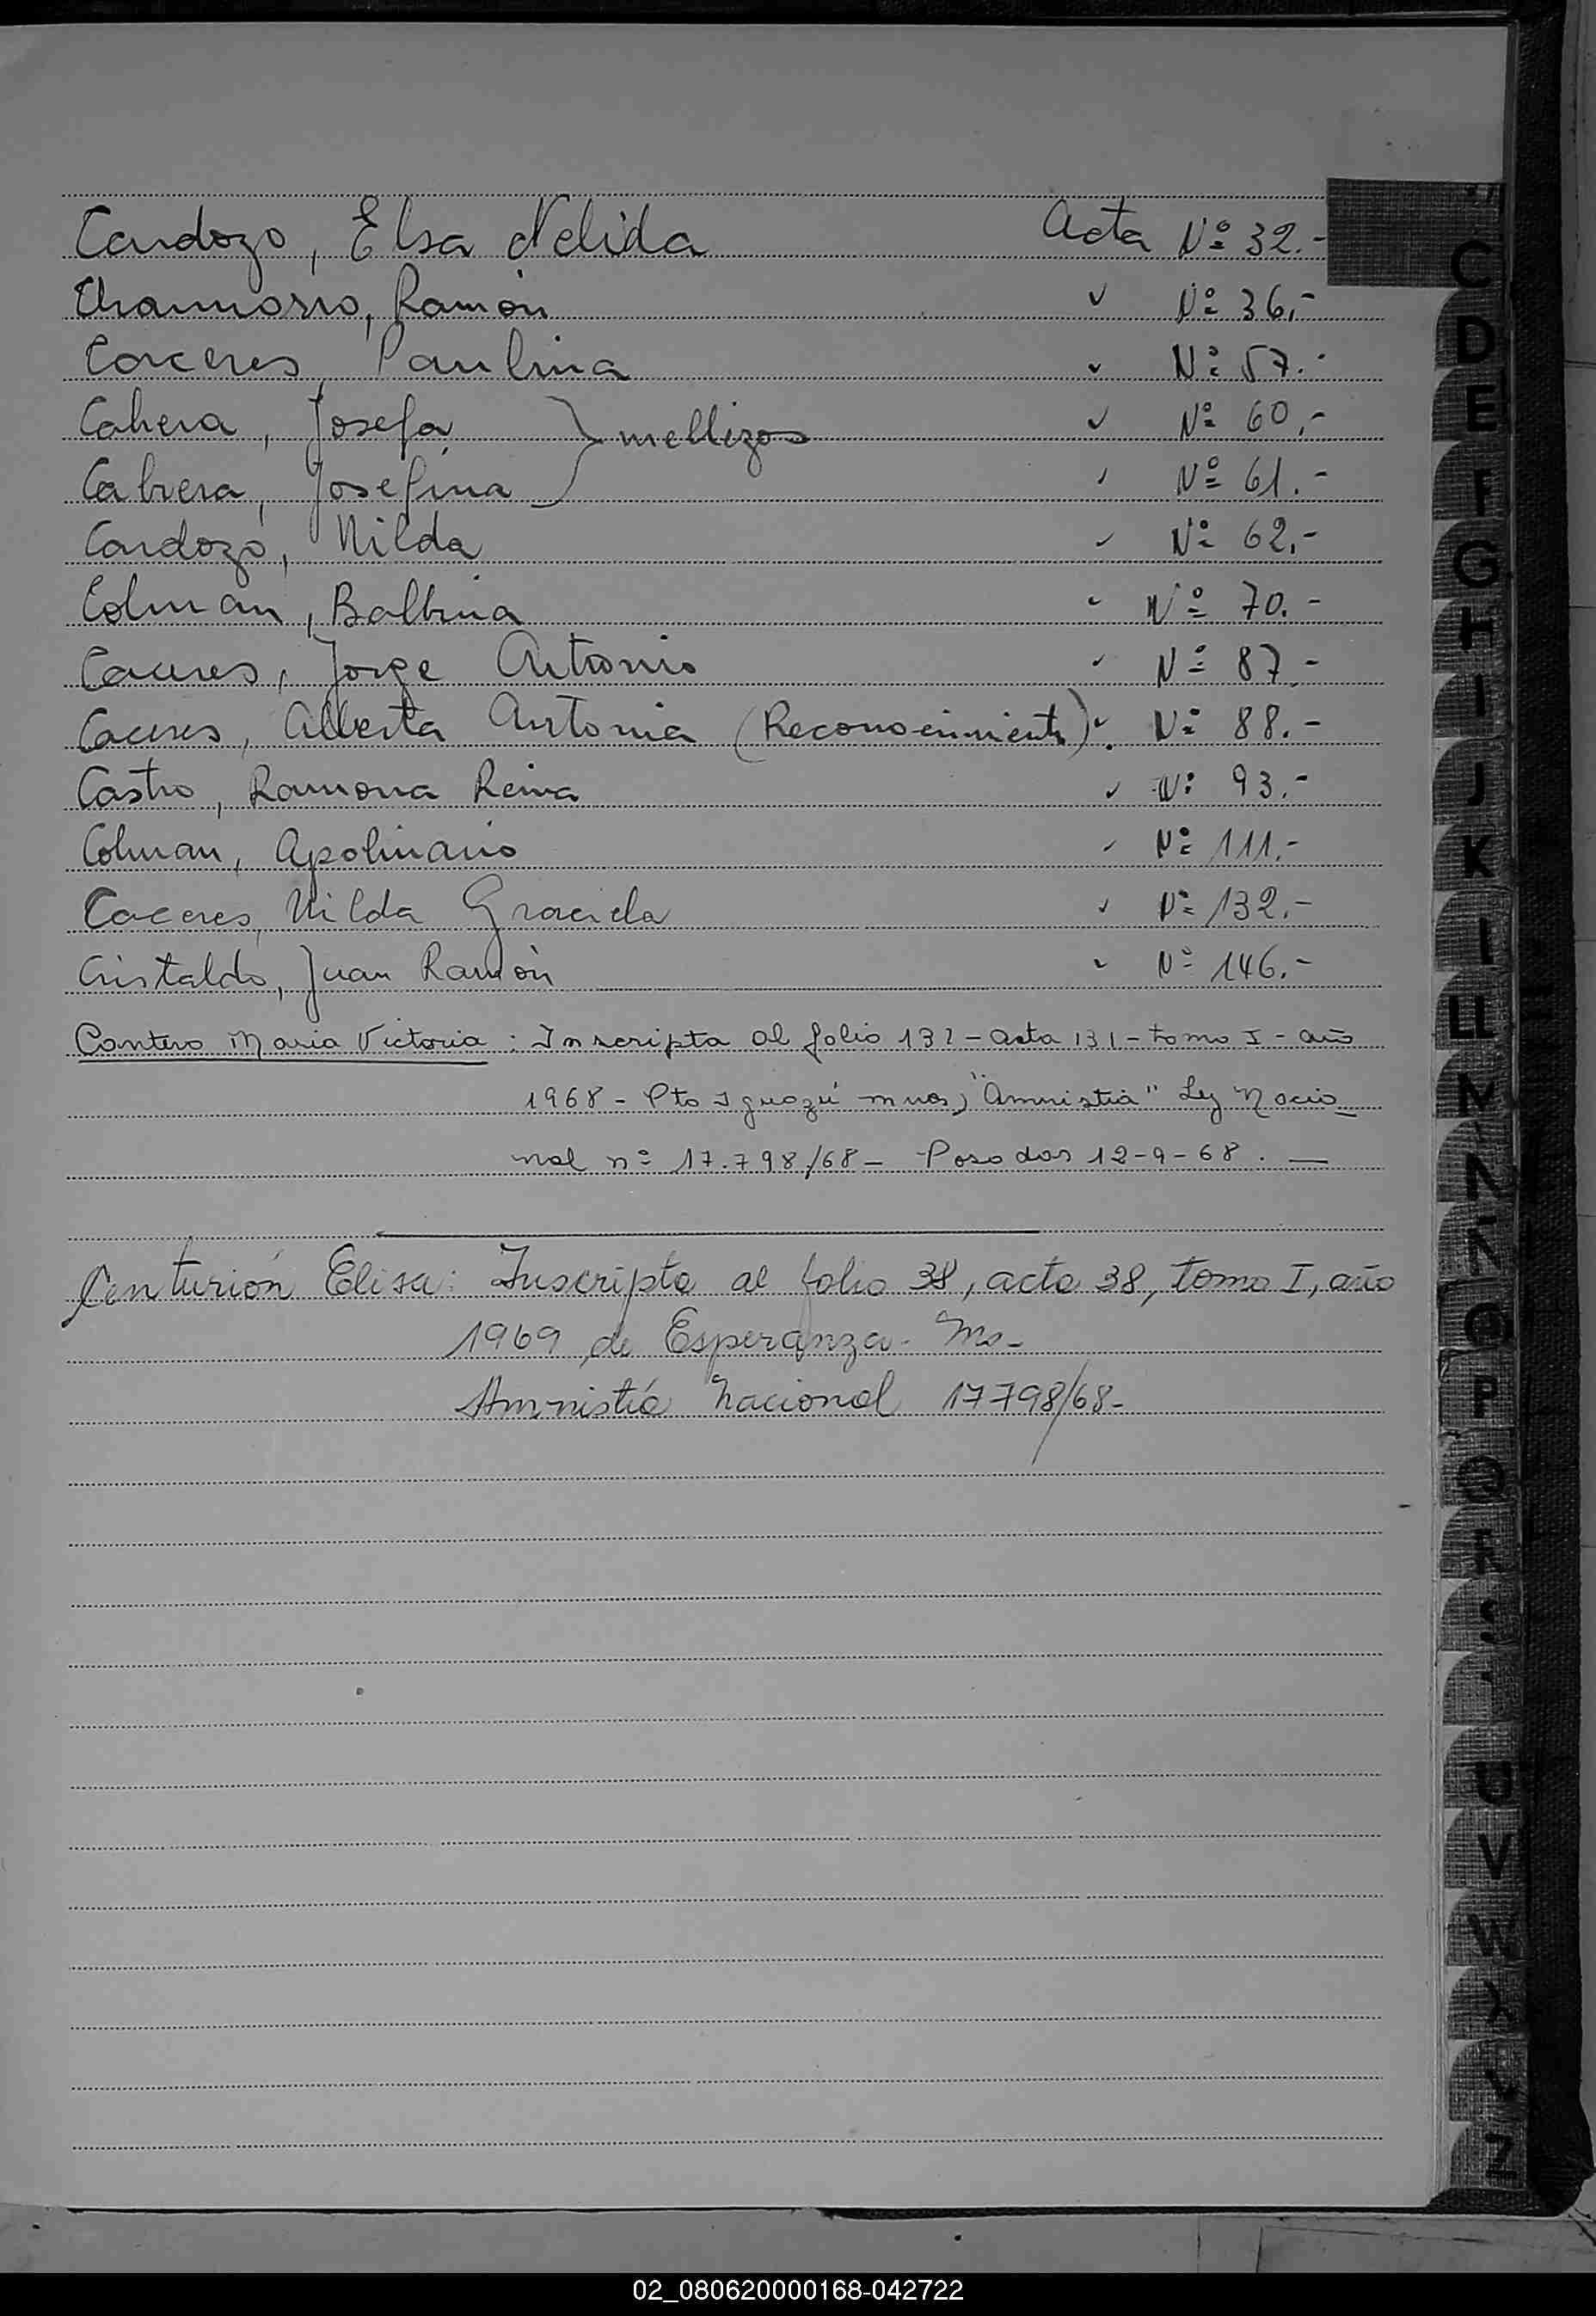 Cardozo, Elsa Nelida Acta Nº 32.-
Chamorro, Ramón " Nº 36.-
Caceres, Paulina " Nº 57.-
Cabrera, Josefa } mellizos " Nº 60.-
Cabrera, Josefina " Nº 61.-
Cardozo, Nilda " Nº 62.-
Colman, Balbina " Nº 70.-
Caceres, Jorge Antonio " Nº 87.-
Caceres, Alberta Antonia (Reconocimiento) " Nº 88.-
Castro, Ramona Reina " Nº 93.-
Colman, Apolinario " Nº 111.-
Caceres, Nilda Graciela " Nº 132.-
Cristaldo, Juan Ramón " Nº 146.-
Contero Maria Victoria: Inscripta al folio 132 - acta 131 - tomo I - año
1968 - Pto Iguazú mnes, "Amnistia" Ley Nacio
nal nº 17.798/68 - Posadas 12-9-68. —
Centurión Elisa: Inscripta al folio 38, acta 38, tomo I, año
1969 de Esperanza - Ms-
Amnistía Nacional 17798/68-
C
D
E
F
G
H
I
J
K
L
LL
M
N
Ñ
O
P
Q
R
S
U
V
W
X
Y
Z
02_080620000168-042722